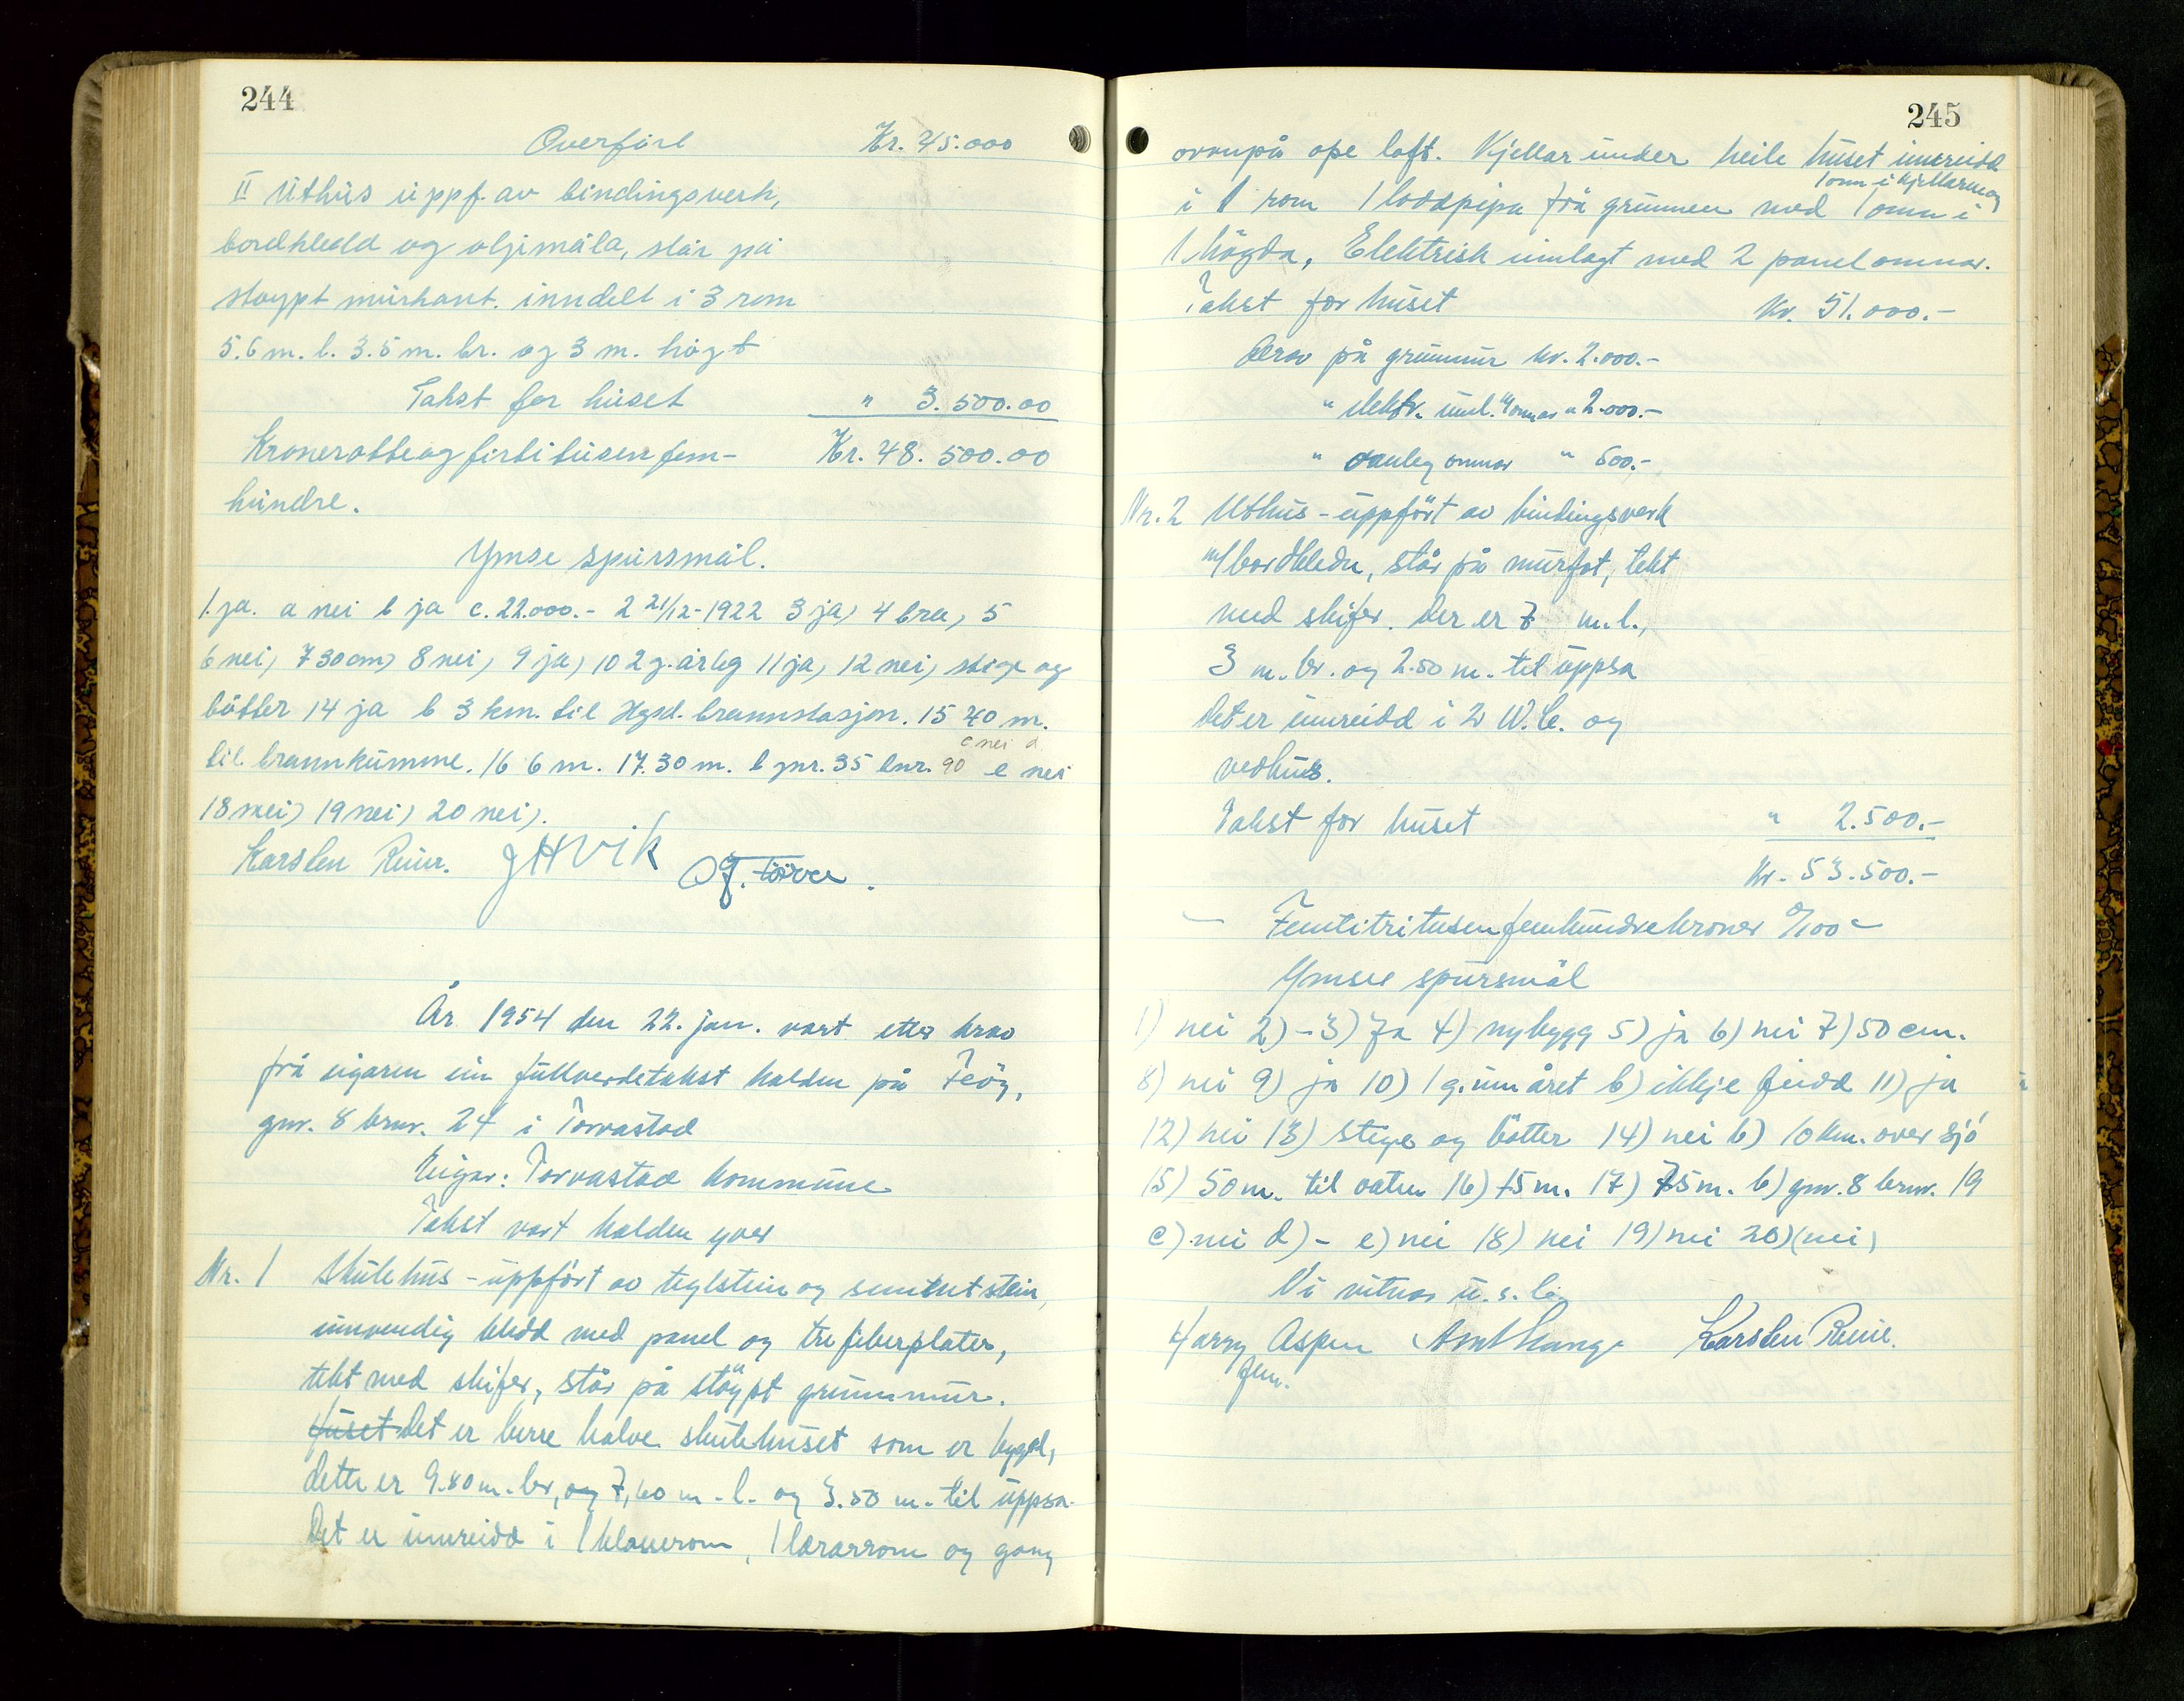 244
Overført Kr. 45.000
II Uthus uppf. av bindingsverk,
bordkledd og oljemåla, står på
støypt murkant. inndelt i 3 rom
5.6 m. l. 3.5 m. br. og 3 m. høgt
Takst for huset " 3.500.00
Kroneråtteogførtitusenfem- Kr. 48.500.00
hundre.
Ymse spursmål.
1. ja. a nei b ja c. 22.000.- 2 21/12-1922 3 ja, 4 bra, 5
6 nei, 7 30 cm, 8 nei, 9 ja, 10 2 g. årleg 11 ja, 12 nei, stige og
bøtter 14 ja b 3 km. til Hgsd. brannstasjon. 15 40 m.
til brannkumme. 16 6 m. 17. 30 m. b gnr. 35 bnr. 90 c nei d e nei
18 nei, 19 nei, 20 nei,.
Karsten Reine. J H Vik
År 1954 den 22. jan. vart etter krav
frå eigaren ein fullverdetakst halden på Feøy,
gnr. 8 bnr. 24 i Torvastad
Eigar: Torvastad kommune
Takst vart halden yver
Nr. 1 Skulehus - uppført av teglstein og sementstein,
innvendig kledd med panel og trefiberplater,
tekt med skifer, står på støypt grunnmur.
Huset Det er berre halve skulehuset som er bygd,
dette er 9.80 m. br, og 7,60 m. l. og 3.50 m. til uppsa.
Det er innreidd i 1 klasserom, 1 lærarrom og gang
245
ovanpå ope loft. Kjellar under heile huset innreidd
i 1 rom 1 loddpipa frå grunnen med 1 omn i kjellaren og 1 omn i
1 høgda, Elektrisk innlagt med 2 panelomnar.
Takst for huset Kr. 51.000.-
Herav på grunnmur kr. 2.000.-
" elektr. innl. " omnar " 2.000.-
" vanleg omnar " 500.-
Nr. 2 Uthus - uppført av bindingsverk
m/ bordkledn, står på murfot, tekt
med skifer. Der er 7 m. l.,
3 m. br. og 2.50 m. til uppsa
Det er innreidd i 2 W.C. og
vedhus.
Takst for huset " 2.500.-
Kr. 53.500.-
- Femtitritusenfemhundrekroner 0/100 -
Ymse spursmål
1) nei 2) - 3) Ja 4) nybygg 5) ja 6) nei 7) 50 cm.
8) nei 9) ja 10) 1 g. um året b) ikkje feidd 11) ja
12) nei 13) stige og bøtter 14) nei b) 10 km. over sjø
15) 50 m. til vatn 16) 15 m. 17) 75 m. b) gnr. 8 bnr. 19
c) nei d) - e) nei 18) nei 19) nei 20) (nei)
Vi vitnar u. s. l.
Harry Aspen Karsten Reine.
fem.